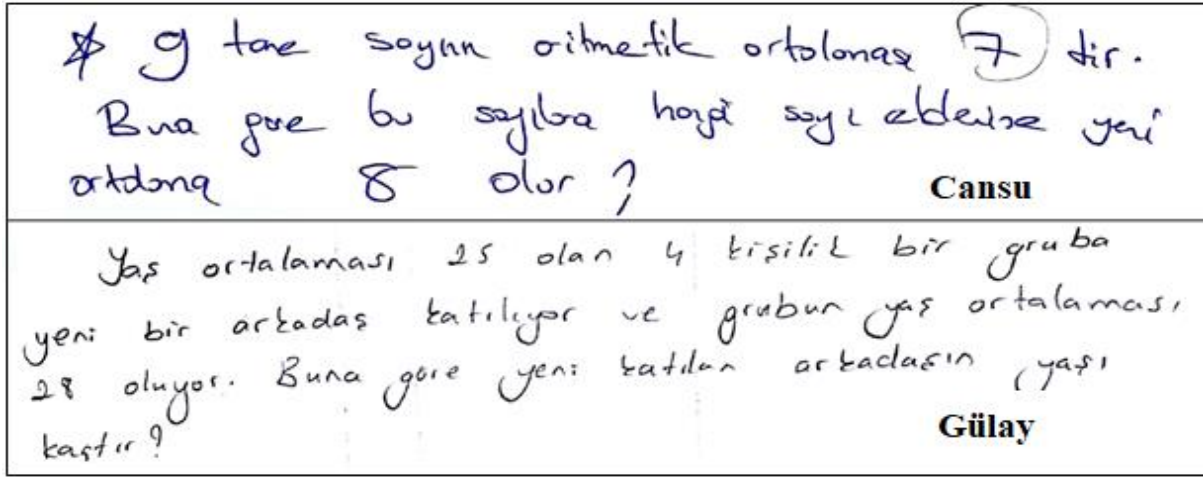 * 9 tane sayının aritmetik ortalaması 7 dir.
Buna göre bu sayılara hangi sayı eklenirse yeni
ortalama 8 olur?
Cansu
Yaş ortalaması 25 olan 4 kişilik bir gruba
yeni bir arkadaş katılıyor ve grubun yaş ortalaması
28 oluyor. Buna göre yeni katılan arkadaşın yaşı
kaçtır?
Gülay